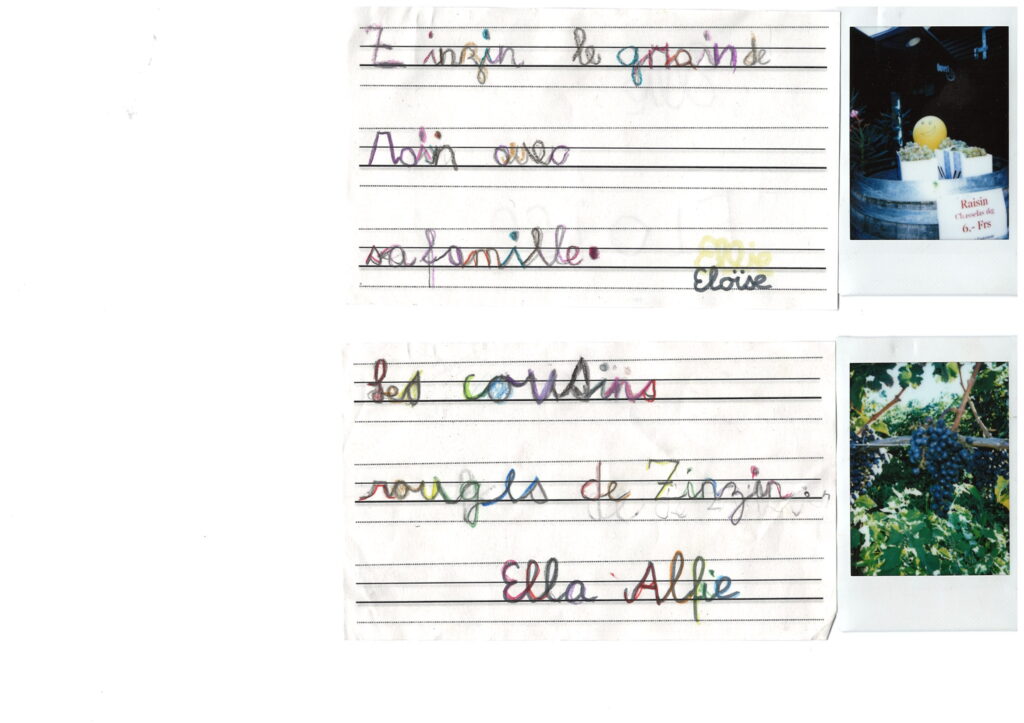 Zinzin le grain de
raisin avec
sa famille.
Eloïse
Raisin
Chasselas
6.- Frs
Les cousins
rouges de Zinzin.
Ella Alfie